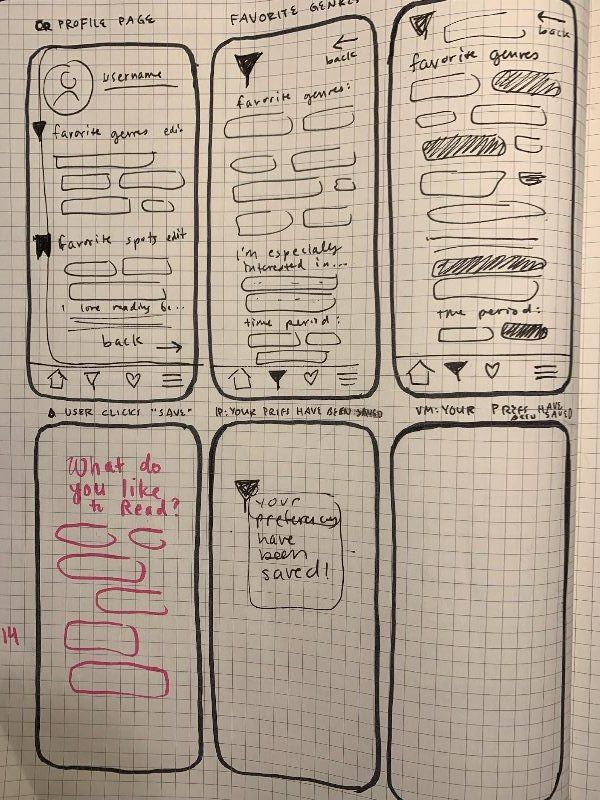 OR PROFILE PAGE
username
favorite genres edit
favorite spots edit
I love reading bc...
back
FAVORITE GENRES
back
favorite genres:
I'm especially
interested in...
time period:
back
favorite genres
time period:
USER CLICKS "SAVE"
What do
you like
to Read?
14
IP: YOUR PREFS HAVE BEEN SAVED
your
preferences
have
been
saved!
VM: YOUR PREFS HAVE
BEEN SAVED